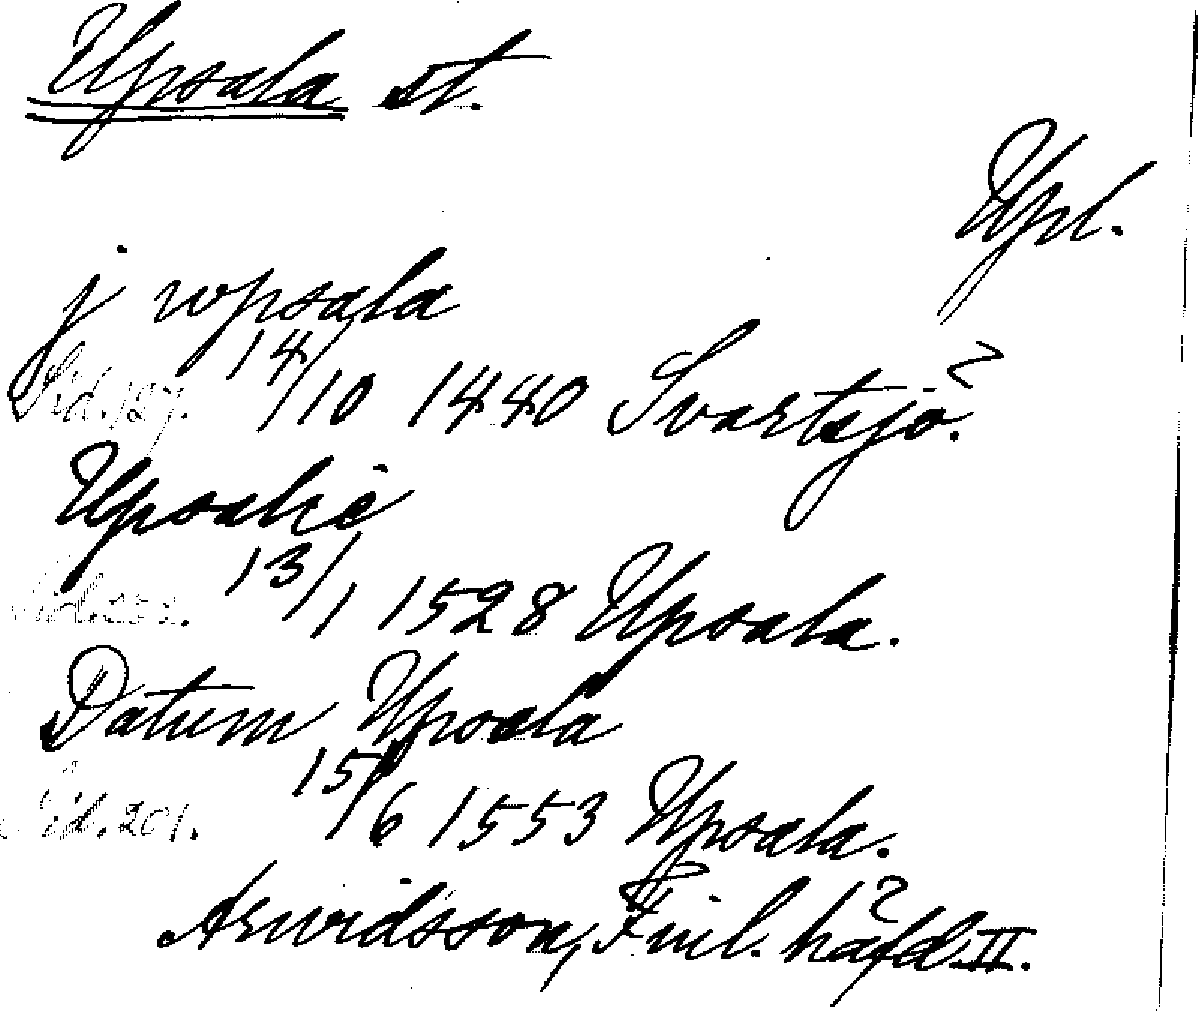 Upsala st.
Upl.
j wpsala
Sid. 127. 14/10 1440 Svartsjö.
Upsalie
13/1 1528 Upsala.
Datum Upsala
Sid. 201. 15/6 1553 Upsala.
Arwidsson, Finl. häfd. II.